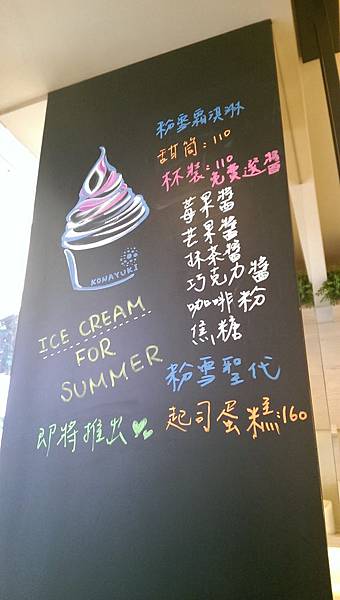 粉雪霜淇淋
甜筒：110
杯裝：110
免費選醬
莓果醬
芒果醬
抹茶醬
巧克力醬
咖啡粉
焦糖
粉雪聖代
起司蛋糕：160
KONAYUKI
ICE CREAM
FOR
SUMMER
即將推出